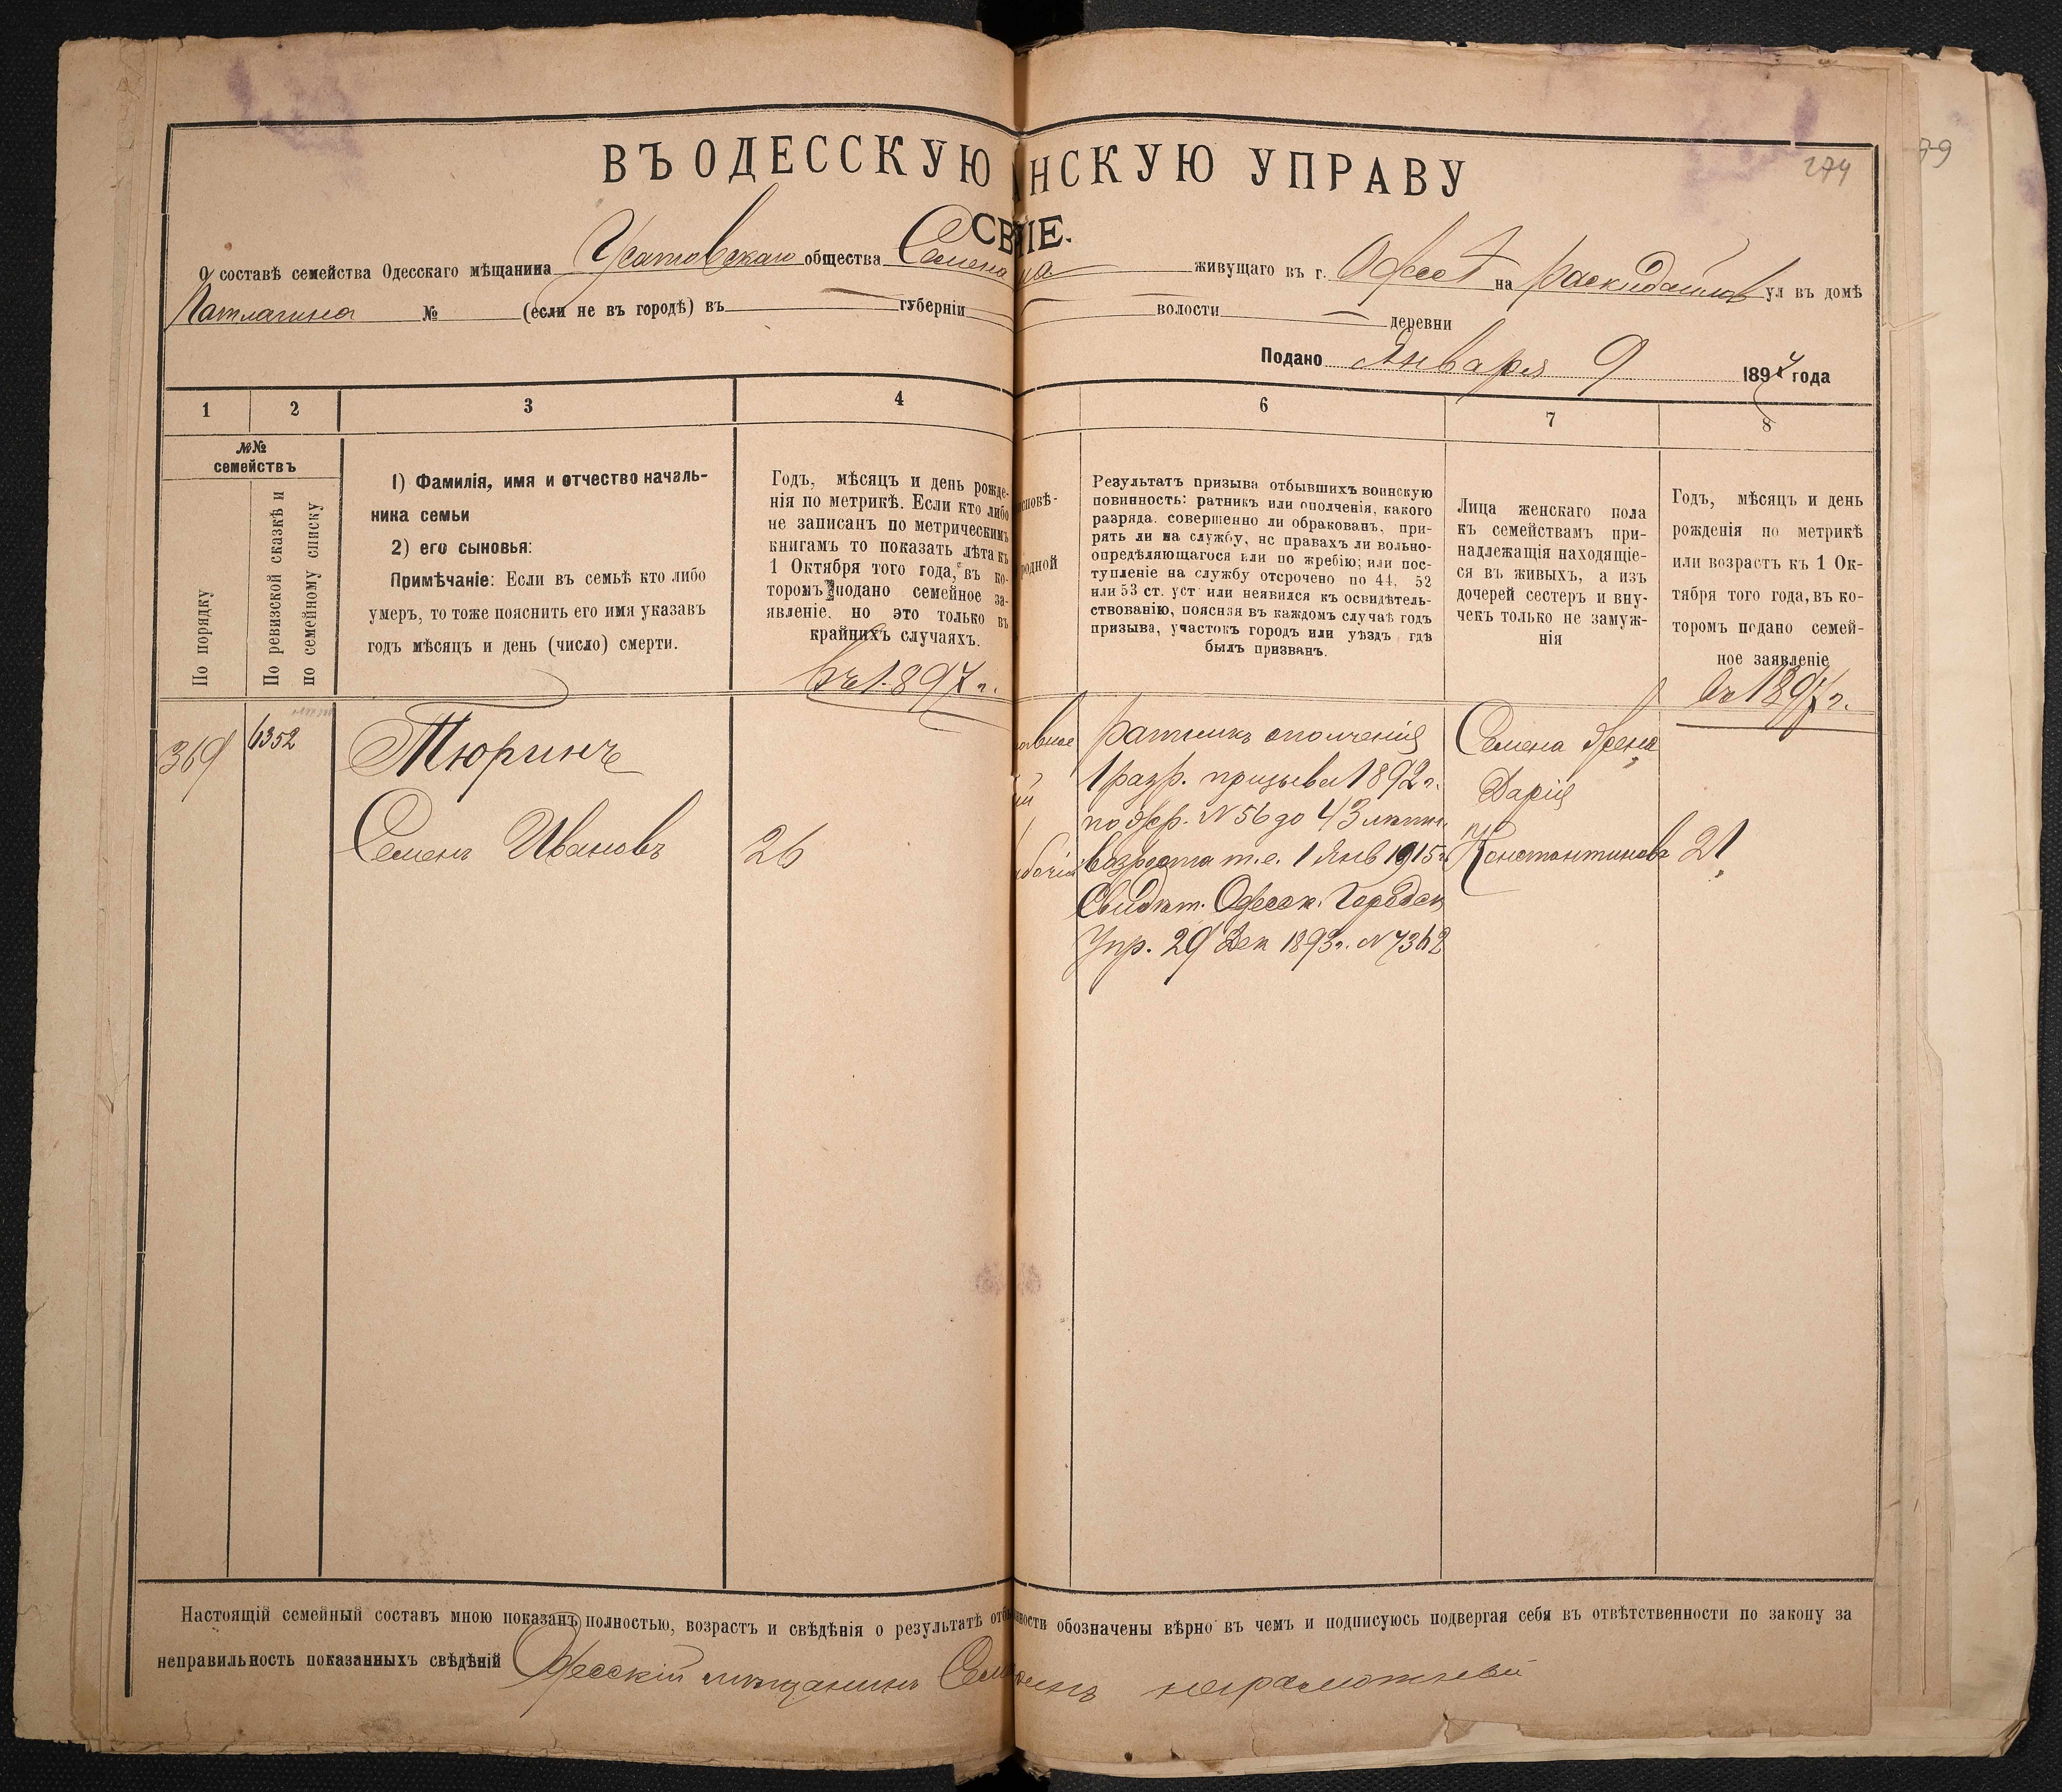 274
79
ВЪ ОДЕССКУЮ НСКУЮ УПРАВУ
СВ НІЕ.
О составѣ семейства Одесскаго мѣщанина Усатовскаго общества Семена на живущаго въ г. Одессѣ на Раскидайлов ул въ домѣ
Патлагина № (если не въ городѣ) въ губерніи волости деревни
Подано Января 9 1897 года
1 2 3 4 6 7 8
№№ семействъ
По порядку
По ревизской сказкѣ и по семейному списку
1) Фамилія, имя и отчество началь-
ника семьи
2) его сыновья:
Примѣчаніе: Если въ семьѣ кто либо
умеръ, то тоже пояснить его имя указавъ
годъ мѣсяцъ и день (число) смерти.
Годъ, мѣсяцъ и день рожде-
нія по метрикѣ. Если кто либо
не записанъ по метрическимъ
книгамъ то показать лѣта къ
1 Октября того года, въ ко-
торомъ подано семейное за-
явленіе. но это только въ
крайнихъ случаяхъ.
въ 1897 г.
исповѣ-
родной
Результатъ призыва отбывшихъ воинскую
повинность: ратникъ или ополченія, какого
разряда. совершенно ли обракованъ, при-
рять ли на службу, нс правахъ ли вольно-
опредѣляющагося или по жребію; или пос-
тупленіе на службу отсрочено по 44, 52
или 53 ст. уст или неявился къ освидѣтель-
ствованію, поясняя въ каждомъ случаѣ годъ
призыва, участокъ городъ или уѣздъ гдѣ
былъ призванъ.
Лица женскаго пола
къ семействамъ при-
надлежащія находящіе-
ся въ живыхъ, а изъ
дочерей сестеръ и вну-
чекъ только не замуж-
нія
Годъ, мѣсяцъ и день
рожденія по метрикѣ
или возрастъ къ 1 Ок-
тября того года, въ ко-
торомъ подано семей-
ное заявленіе
въ 1897 г.
369 6352 Тюринъ
Семенъ Ивановъ 26
Ратникъ ополченія
1 разр. призыва 1892 г.
по № 56 до 43 лѣтн.
возраста т.е. 1 Янв 1915 г.
Свидѣт. Одесск. Городск
Упр. 29 Дек 1893 г. № 7368
Семена жена
Дарія
Константинова 21
Настоящій семейный составъ мною показанъ полностью, возрастъ и свѣдѣнія о результатѣ отб ности обозначены вѣрно въ чемъ и подписуюсь подвергая себя въ отвѣтственности по закону за
неправильность показанныхъ свѣдѣній Одесскій мѣщанинъ неграмотный